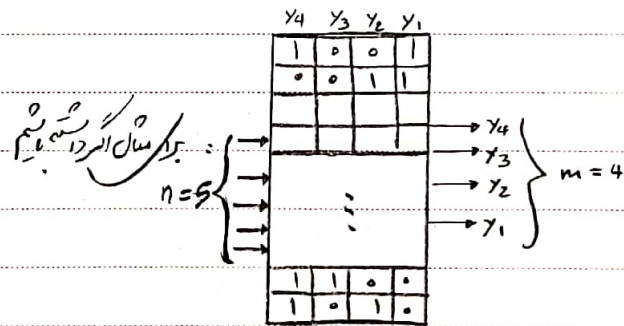 y4 y3 y2 y1
1 0 0 1
0 0 1 1
برای مثال اگر داشته باشیم :
n=5
y4
y3
y2
y1
m = 4
⋮
1 1 0 0
1 0 1 0